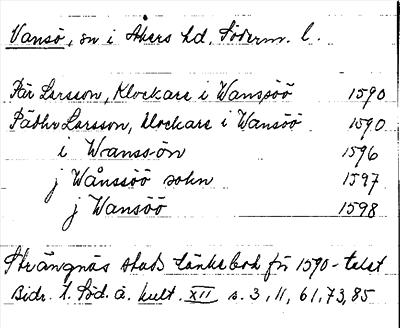 Vansö, sn i Åkers hd, Söderm. l.
Pär Larsson, Klockare i Wanssöö 1590
Pädhr Larsson, klockare i Wansöö 1590
i Wranssön 1596
j Wånssöö sokn 1597
j Wansöö 1598
Strängnäs stads tänkebok för 1590-talet
Bidr. t. Söd. ä. kult. XII s. 3, 11, 61, 73, 85